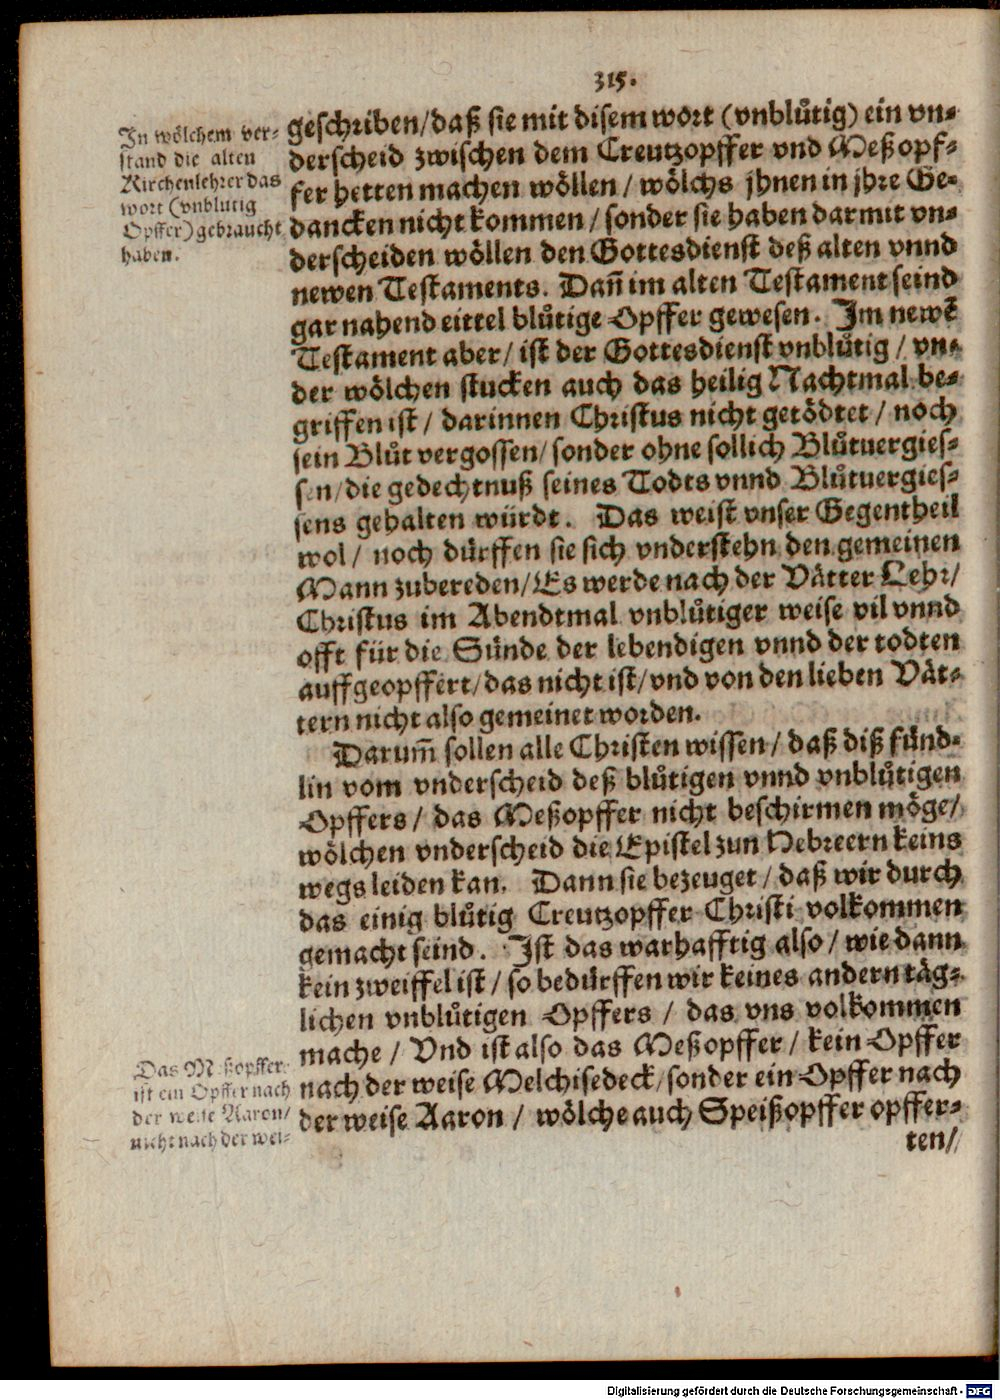 315.
In wölchem ver⸗
stand die alten
Kirchenlehrer das
wort (vnblutig
Opffer) gebraucht
haben.
geschriben/daß sie mit disem wort (vnblůtig) ein vn⸗
derscheid zwischen dem Creutzopffer vnd Meßopf⸗
fer hetten machen wöllen / wölchs jhnen in jhre Ge⸗
dancken nicht kommen / sonder sie haben darmit vn⸗
derscheiden wöllen den Gottesdienst deß alten vnnd
newen Testaments. Dañ im alten Testament seind
gar nahend eittel blůtige Opffer gewesen. Im newẽ
Testament aber / ist der Gottesdienst vnblůtig / vn⸗
der wölchen stucken auch das heilig Nachtmal be⸗
griffen ist / darinnen Christus nicht getödtet / noch
sein Blůt vergossen/ sonder ohne sollich Blůtuergies⸗
sen/die gedechtnuß seines Todts vnnd Blůtuergies⸗
sens gehalten würdt. Das weist vnser Gegentheil
wol / noch dürffen sie sich vnderstehn den gemeinen
Mann zubereden/Es werde nach der Vätter Lehr/
Christus im Abendtmal vnblůtiger weise vil vnnd
offt für die Sünde der lebendigen vnnd der todten
auffgeopffert/das nicht ist/vnd von den lieben Vät⸗
tern nicht also gemeinet worden.
Darum̃ sollen alle Christen wissen / daß diß fünd⸗
lin vom vnderscheid deß blůtigen vnnd vnblůtigen
Opffers / das Meßopffer nicht beschirmen möge/
wölchen vnderscheid die Epistel zun Hebreern keins
wegs leiden kan. Dann sie bezeuget / daß wir durch
das einig blůtig Creutzopffer Christi volkommen
gemacht seind. Ist das warhafftig also / wie dann
kein zweiffel ist / so bedürffen wir keines andern täg⸗
lichen vnblůtigen Opffers / das vns volkommen
mache / Vnd ist also das Meßopffer / kein Opffer
nach der weise Melchisedeck/sonder ein Opffer nach
der weise Aaron / wölche auch Speißopffer opffer⸗
ten/
Das Meßopffer
ist ein Opffer nach
der weise Aaron/
nicht nach der wei⸗
Digitalisierung gefördert durch die Deutsche Forschungsgemeinschaft - DFG